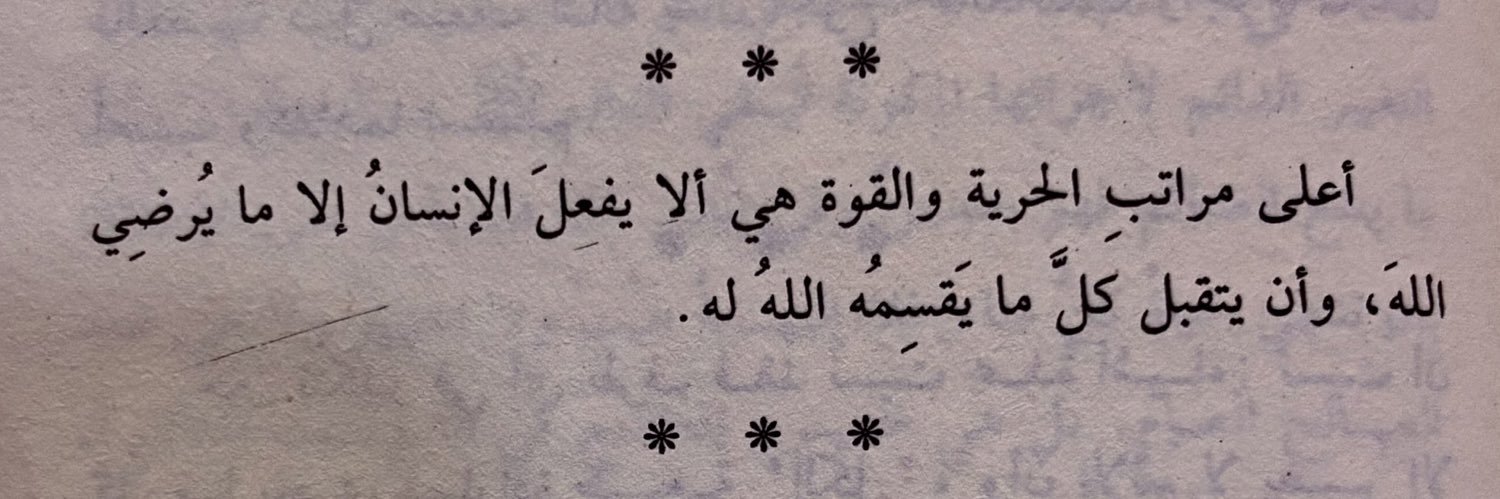 * * *
أعلى مراتبِ الحرية والقوة هي ألا يفعِلَ الإنسانُ إلا ما يُرضِي
اللهَ، وأن يتقبل كلَّ ما يَقسِمُه اللهُ له.
* * *